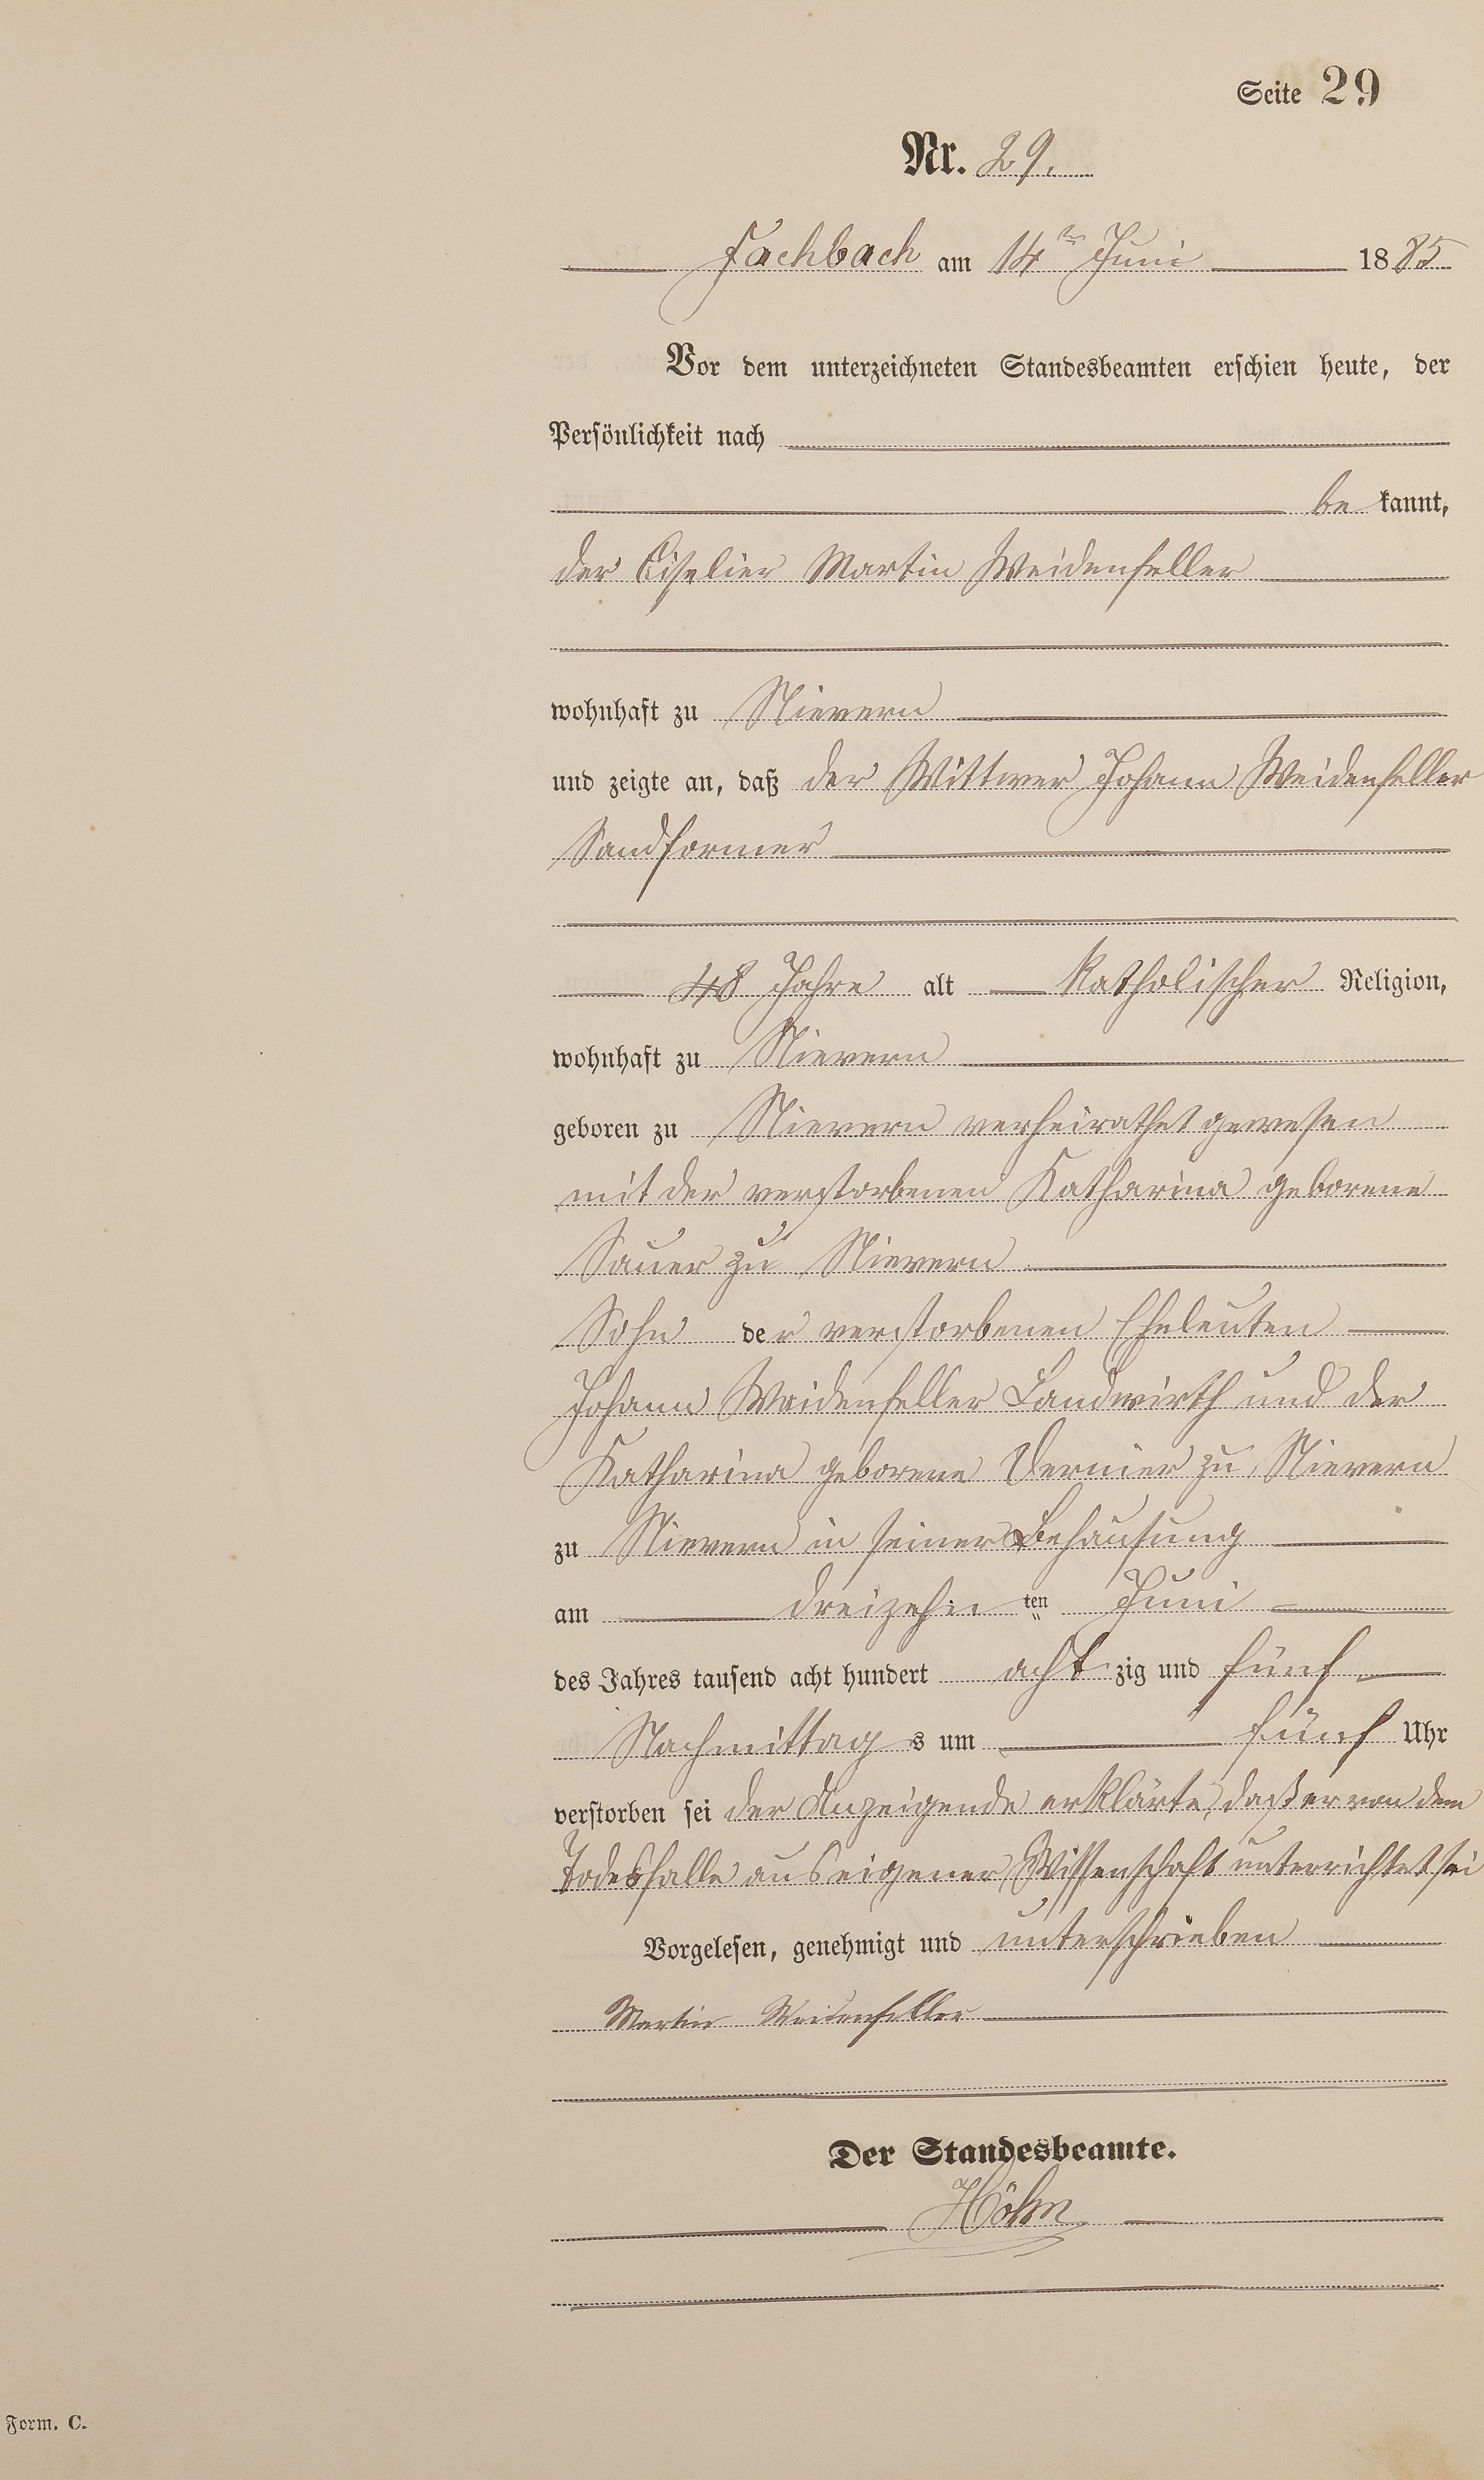 Seite 29
Nr. 29.
Fachbach am 14ten Juni 1885
Vor dem unterzeichneten Standesbeamten erschien heute, der
Persönlichkeit nach
be kannt,
der Ciselier Martin Weidenfeller
wohnhaft zu Nievern
und zeigte an, daß der Wittwer Johann Weidenfeller
Sandformer
48 Jahre alt katholischer Religion,
wohnhaft zu Nievern
geboren zu Nievern verheirathet gewesen
mit der verstorbenen Katharina geborene
Sauer zu Nievern
Sohn der verstorbenen Eheleuten
Johann Weidenfeller Landwirth und der
Katharina geborene Vernier zu Nievern
zu Nievern in seiner Behausung
am dreizehn ten Juni
des Jahres tausend acht hundert acht zig und fünf
Nachmittag s um fünf Uhr
verstorben sei der Anzeigende erklärte, daß er von dem
Todesfalle aus eigener Wissenschaft unterrichtet sei
Vorgelesen, genehmigt und unterschrieben
Martin Weidenfeller
Der Standesbeamte.
Form. C.